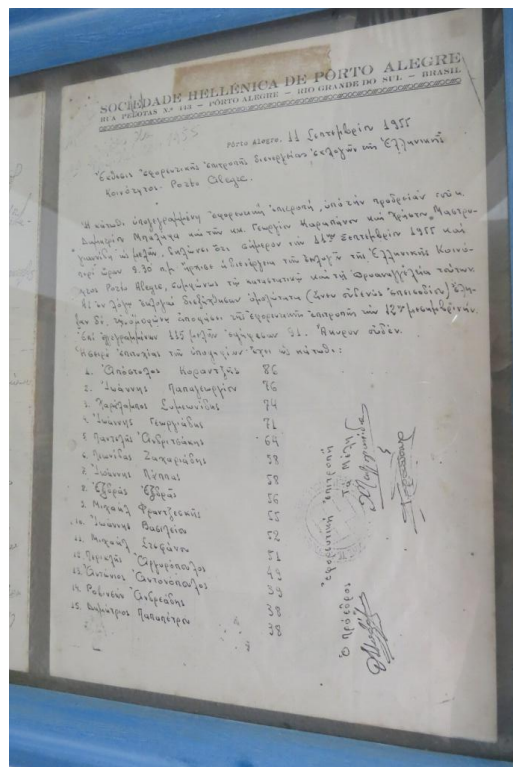 SOCIEDADE HELLÊNICA DE PÔRTO ALEGRE
RUA PELOTAS N.º — PÔRTO ALEGRE — RIO GRANDE DO SUL — BRASIL
Pôrto Alegre, 11 Σεπτεμβρίου 1955
Ἔκθεσις ἐφορευτικῆς ἐπιτροπῆς διενεργείας ἐκλογῶν τῆς Ἑλληνικῆς
Κοινότητος Porto Alegre.
Ἡ κάτωθι ὑπογεγραμμένη ἐφορευτικὴ ἐπιτροπή, ὑπὸ τὴν προεδρείαν τοῦ κ.
Δημητρίου καὶ τῶν κκ. Γεωργίου Καραπάνου καὶ
μελῶν, δηλώνει ὅτι σήμερον τὴν 11ην Σεπτεμβρίου 1955 καὶ
περὶ ὥραν 9.30 π.μ. ἤρχισε ἡ διενέργεια τῶν ἐκλογῶν τῆς Ἑλληνικῆς Κοινό-
τητος Porto Alegre, συμφώνως τῷ καταστατικῷ καὶ τῇ
Αἱ ἐν λόγῳ ἐκλογαὶ διεξήχθησαν ὁμαλώτατα (ἄνευ οὐδενὸς ἐπεισοδίου)
ἀποφάσει τῆς ἐφορευτικῆς ἐπιτροπῆς τὴν 12ην μεσημβρινήν.
Ἐπὶ ἐγγεγραμμένων 115 μελῶν ἐψήφισαν 91. Ἄκυρον οὐδέν.
Ἡ σειρὰ ἐπιτυχίας τῶν ὑποψηφίων ἔχει ὡς κάτωθι:
1. Ἀπόστολος Κοραντζῆς 86
2. Ἰωάννης Παπαγεωργίου 76
3. Χαράλαμπος Συμεωνίδης 74
4. Ἰωάννης Γεωργιάδης 71
5. Παντελῆς Ἀνδριτσάκης 64
6. Λεωνίδας Ζαχαριάδης 58
7. Ἰωάννης Λέππας 58
8. 56
9. Μιχαὴλ Φραντζεσκῆς 55
10. Ἰωάννης Βασιλείου 52
11. Μιχαὴλ Στεφάνου 51
12. Περικλῆς Ἀργυρόπουλος 49
13. Ἀντώνιος Αντονόπουλος 39
14. Ἀνδρεάδης 38
15. Δημήτριος Παπαπέτρου 38
Ἐφορευτικὴ ἐπιτροπή
Ὁ Πρόεδρος Τὰ Μέλη